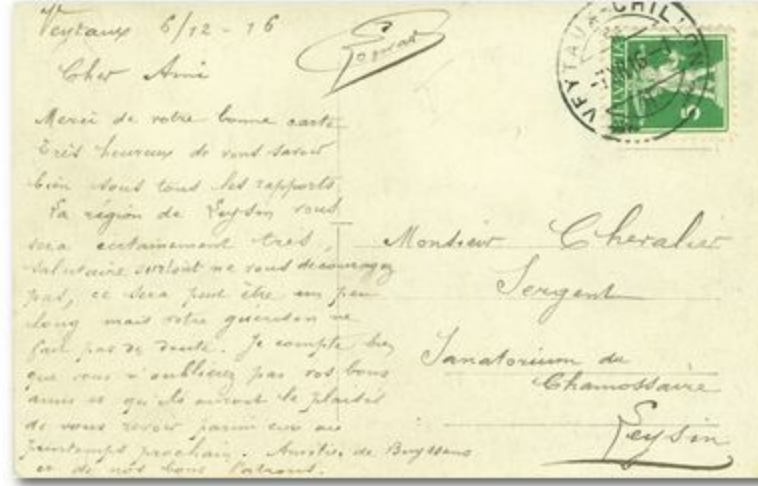 Veytaux 6/12 - 16
Cher Ami
Merci de votre bonne carte
Très heureux de vous savoir
bien sous tous les rapports.
La région de Leysin vous
sera certainement très
salutaire surtout ne vous decouragez
pas, ce sera peut être un peu
long mais votre guerison ne
fait pas de doute. Je compte bien
que vous n'oublierez pas vos bons
amis et qu'ils auront le plaisir
de vous revoir parmi eux au
printemps prochain. Amitiés de Buyssens
et de nos bons Patrons.
VEYTAUX-CHILLON
HELVETIA
5
Monsieur Chevalier
Sergent
Sanatorium du
Chamossaire
Leysin